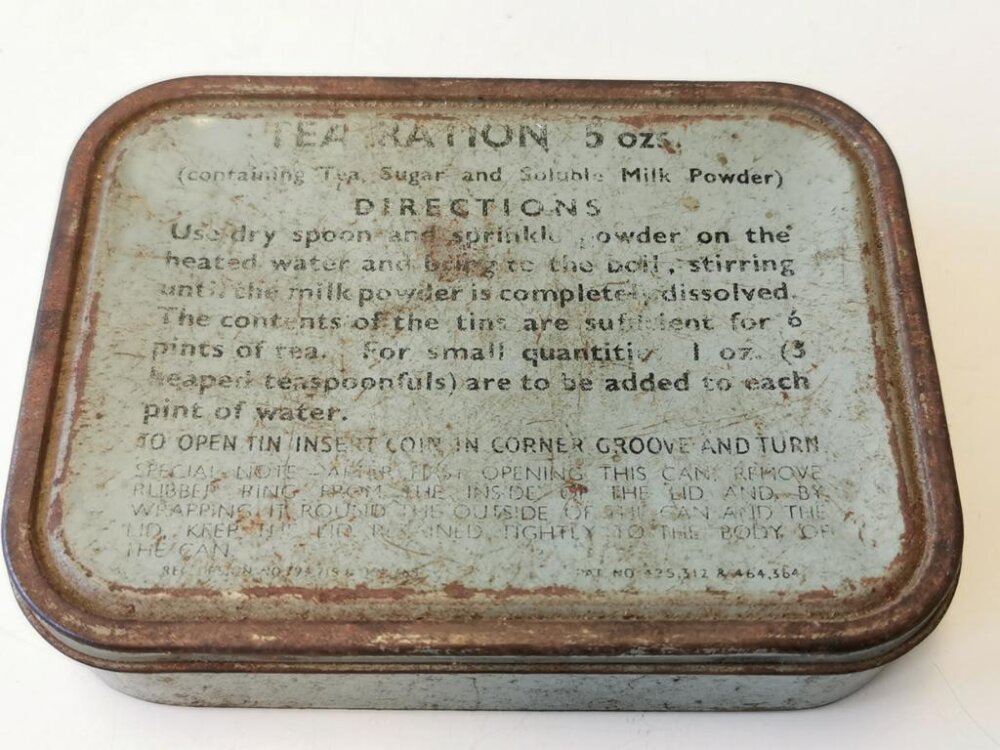 TEA RATION 5 ozs.
(containing Tea, Sugar and Soluble Milk Powder)
DIRECTIONS
Use dry spoon and sprinkle powder on the
heated water and bring to the boil, stirring
until the milk powder is completely dissolved.
The contents of the tins are sufficient for 6
pints of tea. For small quantities 1 oz. (3
heaped teaspoonfuls) are to be added to each
pint of water.
TO OPEN TIN INSERT COIN IN CORNER GROOVE AND TURN
SPECIAL NOTE - AFTER FIRST OPENING THIS CAN, REMOVE
RUBBER RING FROM THE INSIDE OF THE LID AND BY
WRAPPING IT ROUND THE OUTSIDE OF THE CAN AND THE
LID, KEEP THE LID RETAINED TIGHTLY TO THE BODY OF
THE CAN.
REG. DESIGN NO. PAT. NO. 425,312 & 464,364